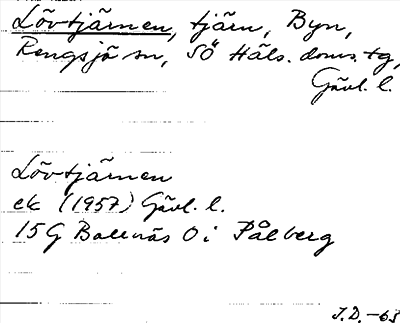 Lövtjärnen, tjärn, Byn,
Rengsjö sn, SÖ Häls. doms. tg,
Gävl. l.
Lövtjärnen
ek (1957) Gävl. l.
15G Bollnäs O i Pålberg
J.D.-65